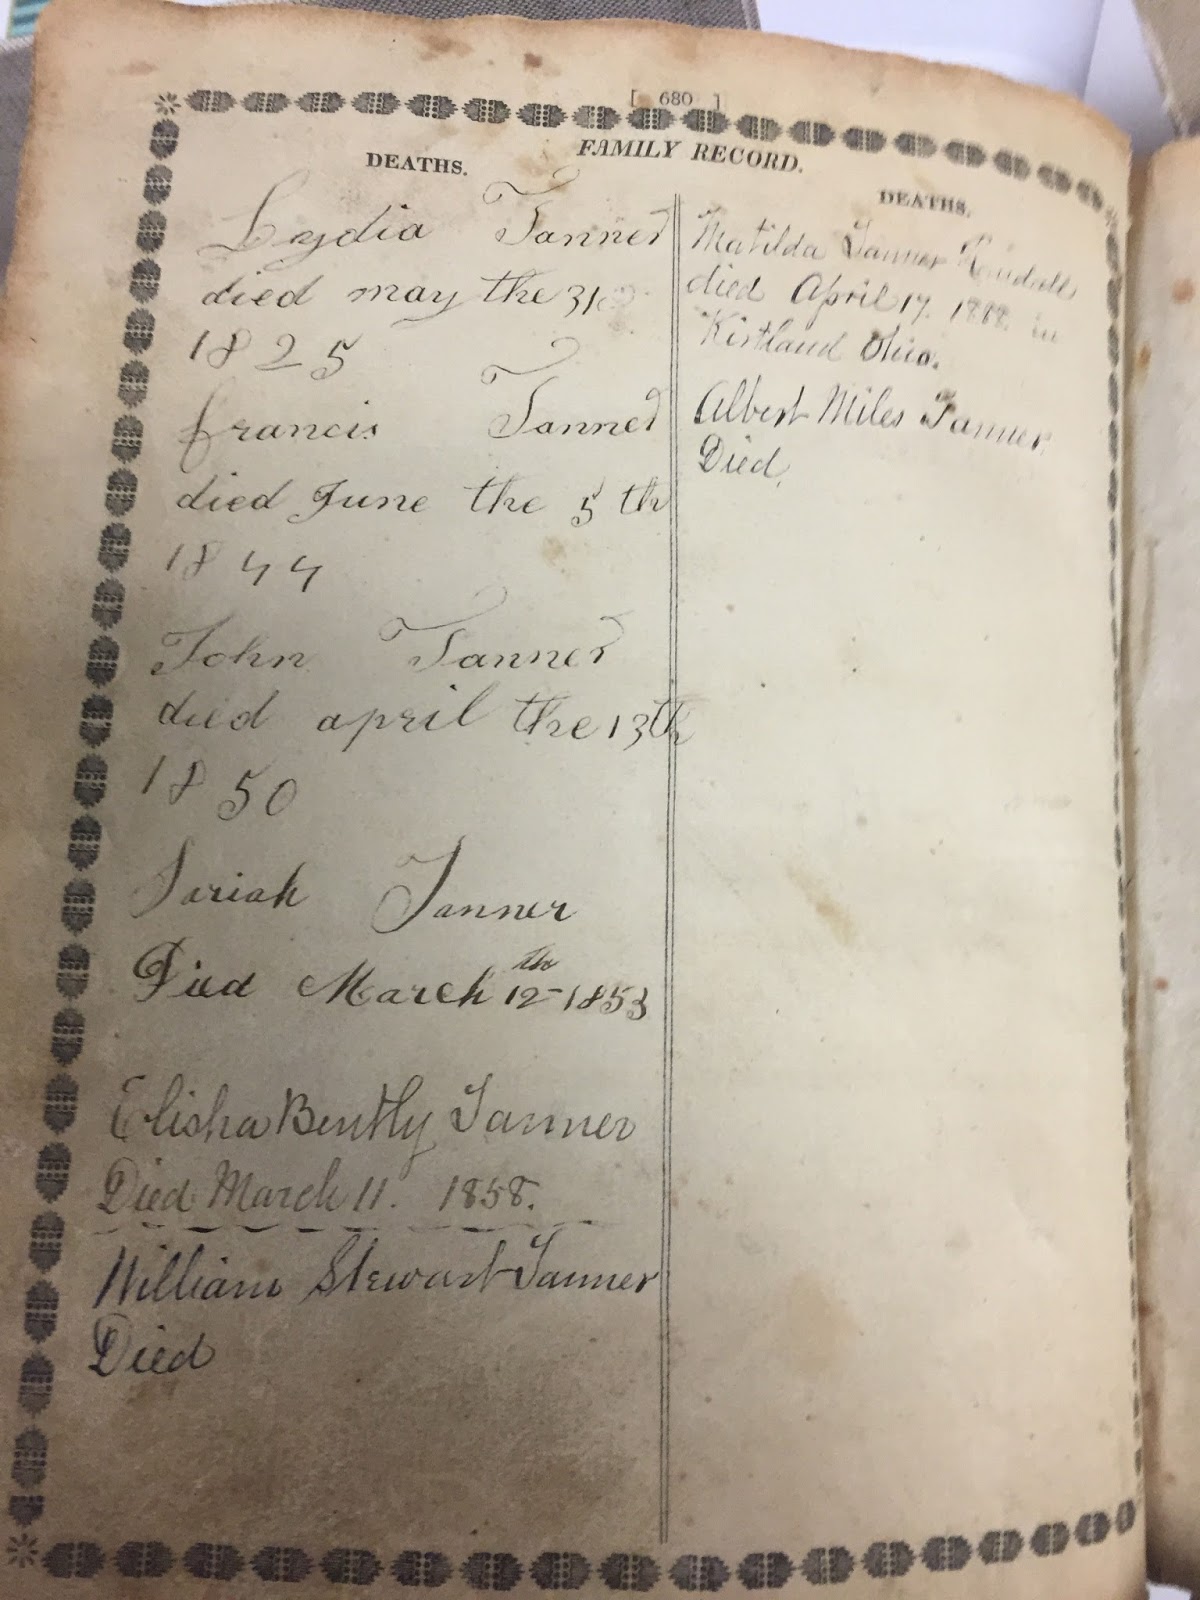 [ 680 ]
FAMILY RECORD.
DEATHS.
Lydia Tanner
died may the 31
1825
francis Tanner
died June the 5 th
1844
John Tanner
died april the 13th
1850
Sariah Tanner
Died March 12th 1853
Elisha Bently Tanner
Died March 11. 1858.
William Stewart Tanner
Died
DEATHS.
Matilda Tanner Randall
died April 17. 1888. in
Kirtland Ohio.
Albert Miles Tanner
Died